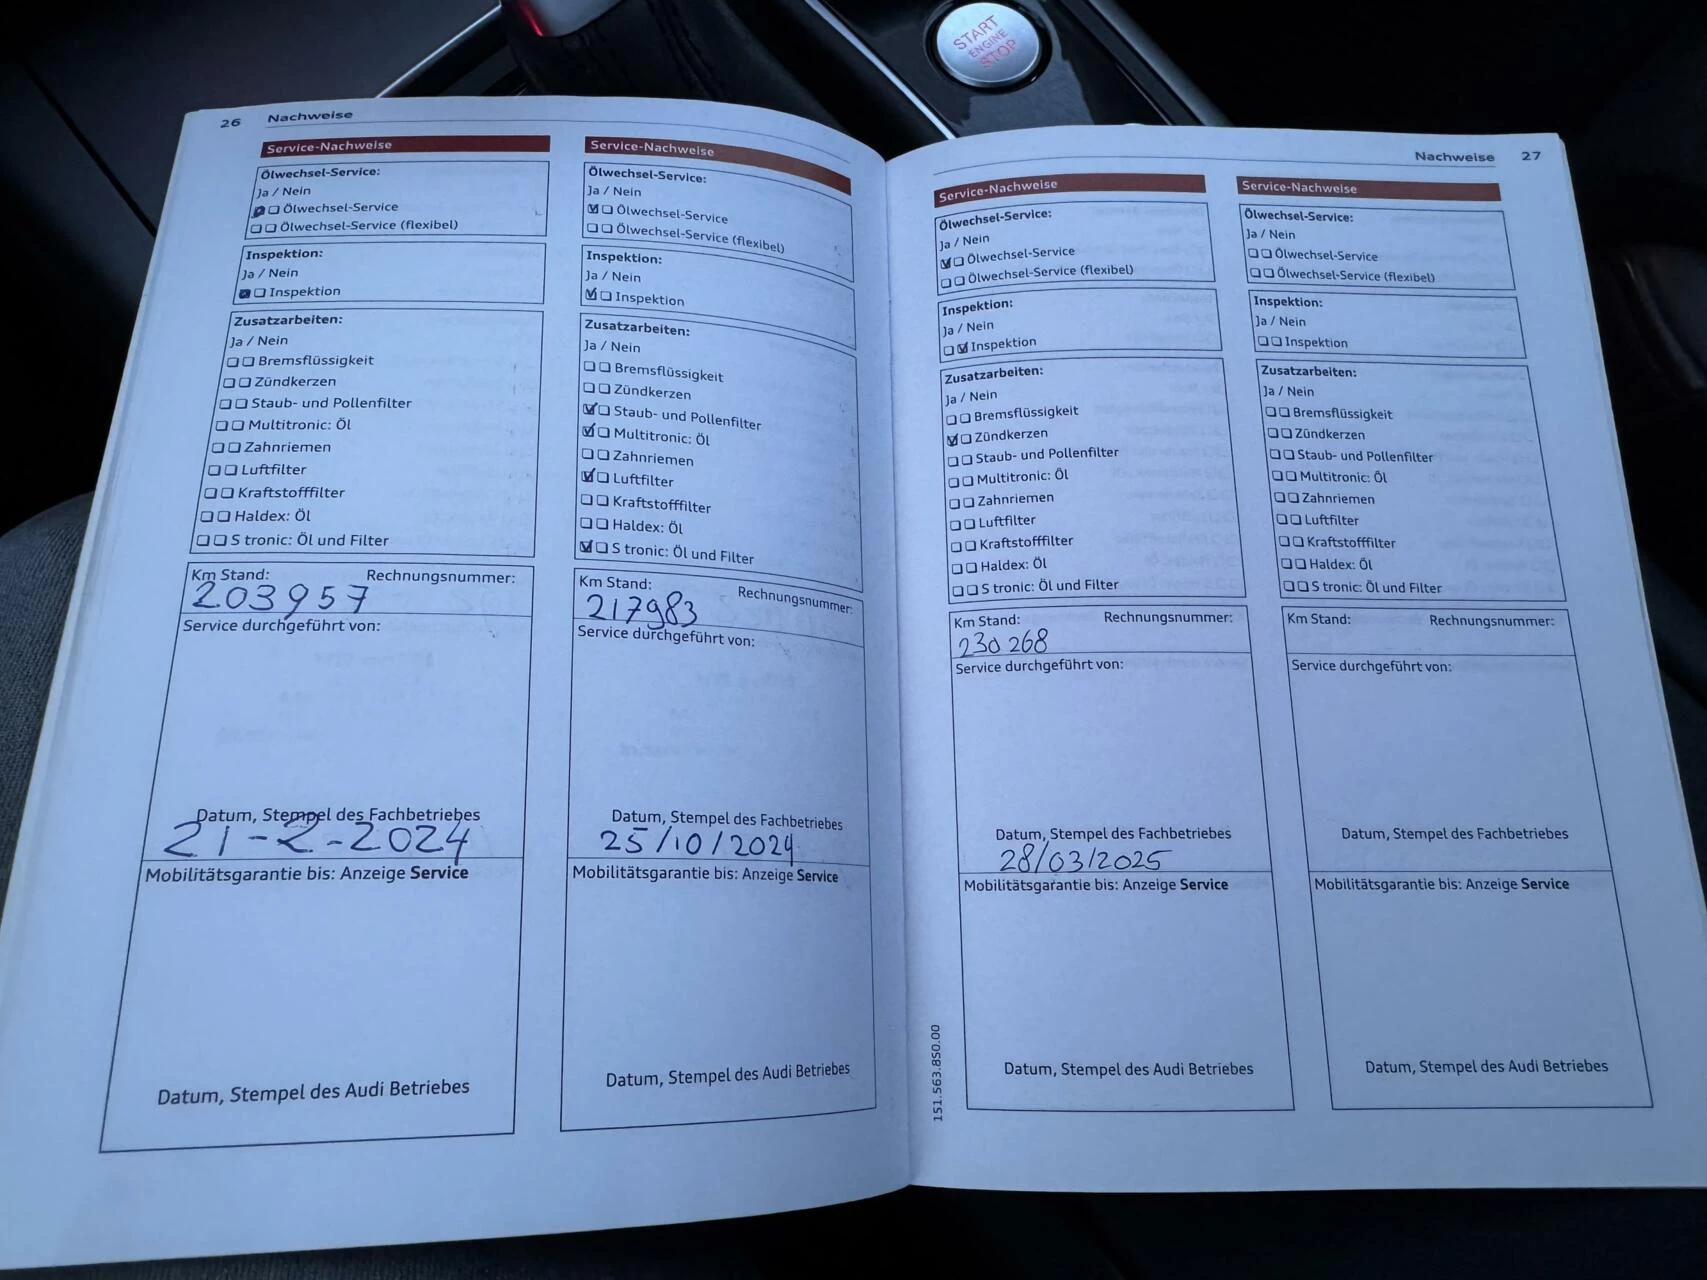 START
ENGINE
STOP
26 Nachweise
Service-Nachweise
Ölwechsel-Service:
Ja / Nein
Ölwechsel-Service
Ölwechsel-Service (flexibel)
Inspektion:
Ja / Nein
Inspektion
Zusatzarbeiten:
Ja / Nein
Bremsflüssigkeit
Zündkerzen
Staub- und Pollenfilter
Multitronic: Öl
Zahnriemen
Luftfilter
Kraftstofffilter
Haldex: Öl
S tronic: Öl und Filter
Km Stand: Rechnungsnummer:
203957
Service durchgeführt von:
Datum, Stempel des Fachbetriebes
21-2-2024
Mobilitätsgarantie bis: Anzeige Service
Datum, Stempel des Audi Betriebes
Service-Nachweise
Ölwechsel-Service:
Ja / Nein
Ölwechsel-Service
Ölwechsel-Service (flexibel)
Inspektion:
Ja / Nein
Inspektion
Zusatzarbeiten:
Ja / Nein
Bremsflüssigkeit
Zündkerzen
Staub- und Pollenfilter
Multitronic: Öl
Zahnriemen
Luftfilter
Kraftstofffilter
Haldex: Öl
S tronic: Öl und Filter
Km Stand: Rechnungsnummer:
217983
Service durchgeführt von:
Datum, Stempel des Fachbetriebes
25/10/2024
Mobilitätsgarantie bis: Anzeige Service
Datum, Stempel des Audi Betriebes
Nachweise 27
Service-Nachweise
Ölwechsel-Service:
Ja / Nein
Ölwechsel-Service
Ölwechsel-Service (flexibel)
Inspektion:
Ja / Nein
Inspektion
Zusatzarbeiten:
Ja / Nein
Bremsflüssigkeit
Zündkerzen
Staub- und Pollenfilter
Multitronic: Öl
Zahnriemen
Luftfilter
Kraftstofffilter
Haldex: Öl
S tronic: Öl und Filter
Km Stand: Rechnungsnummer:
230 268
Service durchgeführt von:
Datum, Stempel des Fachbetriebes
28/03/2025
Mobilitätsgarantie bis: Anzeige Service
Datum, Stempel des Audi Betriebes
151.563.850.00
Service-Nachweise
Ölwechsel-Service:
Ja / Nein
Ölwechsel-Service
Ölwechsel-Service (flexibel)
Inspektion:
Ja / Nein
Inspektion
Zusatzarbeiten:
Ja / Nein
Bremsflüssigkeit
Zündkerzen
Staub- und Pollenfilter
Multitronic: Öl
Zahnriemen
Luftfilter
Kraftstofffilter
Haldex: Öl
S tronic: Öl und Filter
Km Stand: Rechnungsnummer:
Service durchgeführt von:
Datum, Stempel des Fachbetriebes
Mobilitätsgarantie bis: Anzeige Service
Datum, Stempel des Audi Betriebes